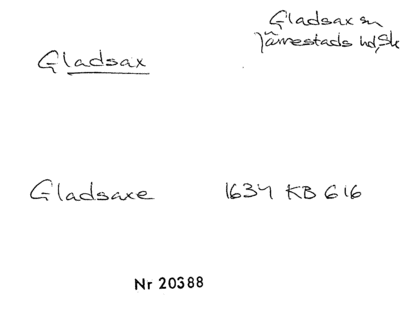 Gladsax
Gladsax sn
Järrestads hd, Sk
Gladsaxe 1634 KB 616
Nr 20388